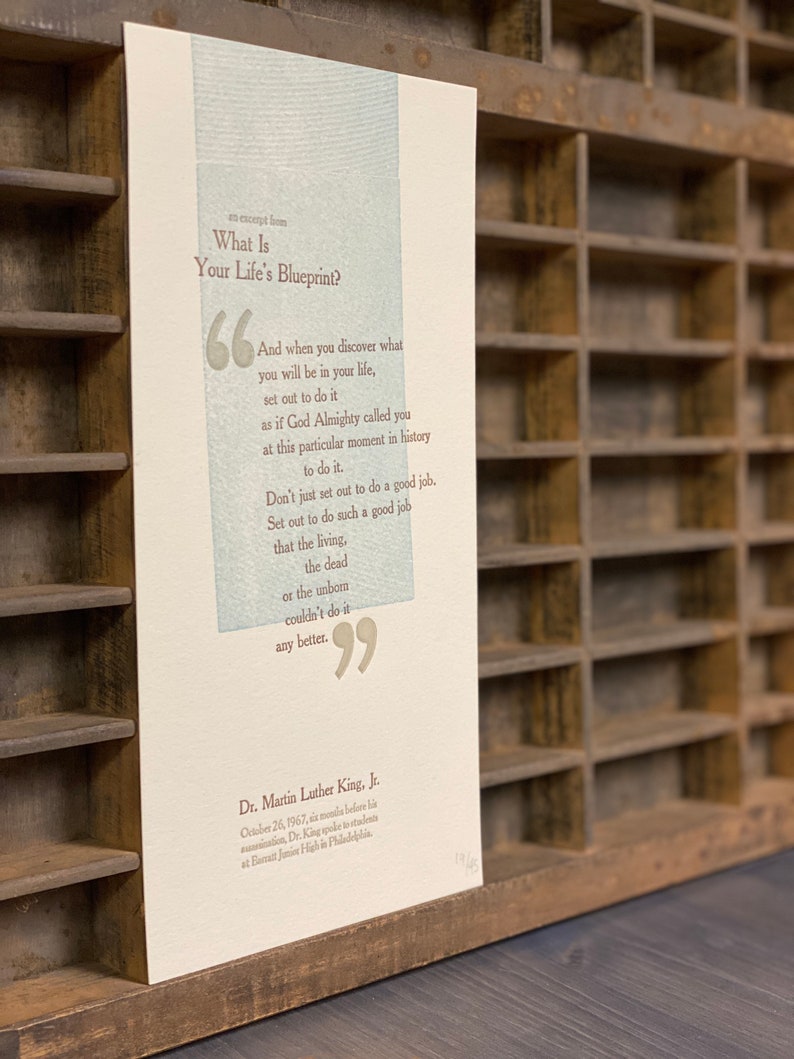 an excerpt from
What Is
Your Life's Blueprint?
“And when you discover what
you will be in your life,
set out to do it
as if God Almighty called you
at this particular moment in history
to do it.
Don't just set out to do a good job.
Set out to do such a good job
that the living,
the dead
or the unborn
couldn't do it
any better.”
Dr. Martin Luther King, Jr.
October 26, 1967, six months before his
assassination, Dr. King spoke to students
at Barratt Junior High in Philadelphia.
19/45